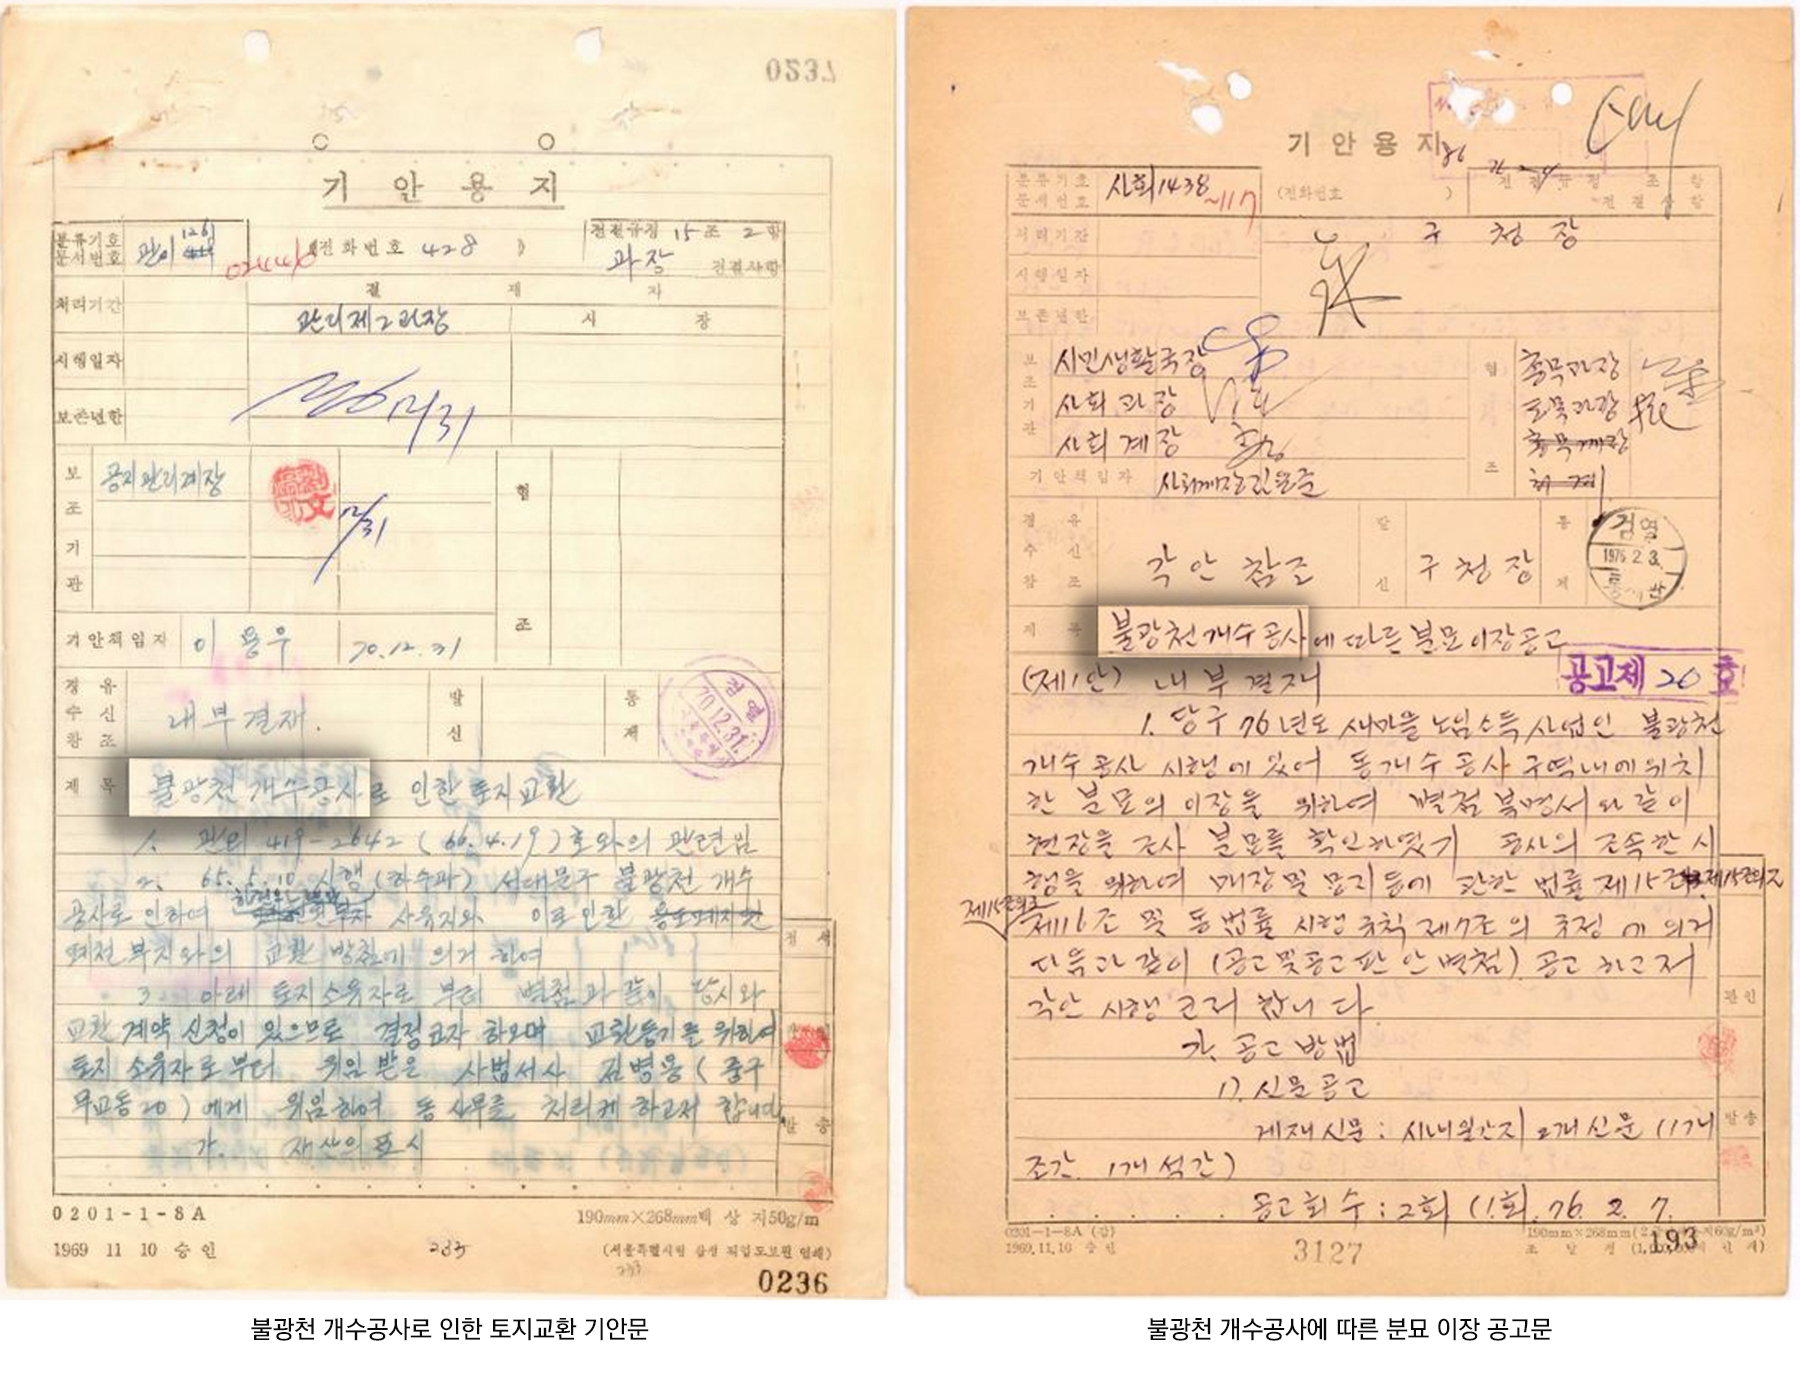 0237
기 안 용 지
분류기호
문서번호
관이
126
02440
(전화번호 428 )
전결규정 15조 2항
과장 전결사항
처리기간
결 재 자
관리제2과장
시 장
시행일자
12/31
보존년한
보조기관
공지관리계장
12/31
협
조
기안책임자
이용우
70.12.31
경유
수신
참조
내부결재.
발신
통제
검열
70.12.31.
제 목
불광천 개수공사로 인한 토지교환
1. 관리 419-2642 (66.4.19)호와의 관련임
2. 65.5.10 시행 (하수과) 서대문구 불광천 개수
공사로 인하여 사유지와 이로 인한
폐천 부지와의 교환 방침에 의거 하여
3. 아래 토지소유자로 부터 별첨과 같이 당시와
교환 계약 신청이 있으므로 결정코자 하오며 교환등기를 위하여
토지 소유자로 부터 위임 받은 사법서사 김병용 (중구
무교동 20) 에게 위임하여 동 사무를 처리케 하고저 합니다
가. 재산의 표시
정 서
관 인
발 송
0201-1-8A
1969 11 10 승인
233
190mm×268mm백 상 지50g/m
0236
불광천 개수공사로 인한 토지교환 기안문
기 안 용 지
분류기호
문서번호
사회1438
~117
(전화번호 )
전결규정 조 항
전결사항
처리기간
구 청 장
시행일자
보존년한
보조기관
시민생활국장
사회과장
사회계장
협
조
총무과장
토목과장
기안책임자
사회계장 김윤준
경유
수신
참조
각안 참조
발신
구청장
통제
검열
1976.2.3.
제 목
불광천개수공사에 따른 분묘이장공고
(제1안) 내부결재
공고제 20 호
1. 당구 76년도 새마을 노임소득 사업인 불광천
개수공사 시행에 있어 동개수공사 구역내에 위치
한 분묘의 이장을 위하여 별첨 복명서와 같이
현장을 조사 분묘를 확인하였기 공사의 조속한 시
행을 위하여 매장 및 묘지등에 관한 법률 제15조
제16조 및 동법률 시행규칙 제7조의 규정에 의거
다음과 같이 (공고및공고판안 별첨) 공고 하고저
각안 시행 코저 합니다
가. 공고 방법
1). 신문공고
게재신문 : 시내일간지 2개신문 (1개
조간 1개 석간)
공고회수 : 2회 (1회. 76. 2. 7.
관인
발송
0201-1-8A (갑)
1969.11.10 승인
3127
193
불광천 개수공사에 따른 분묘 이장 공고문